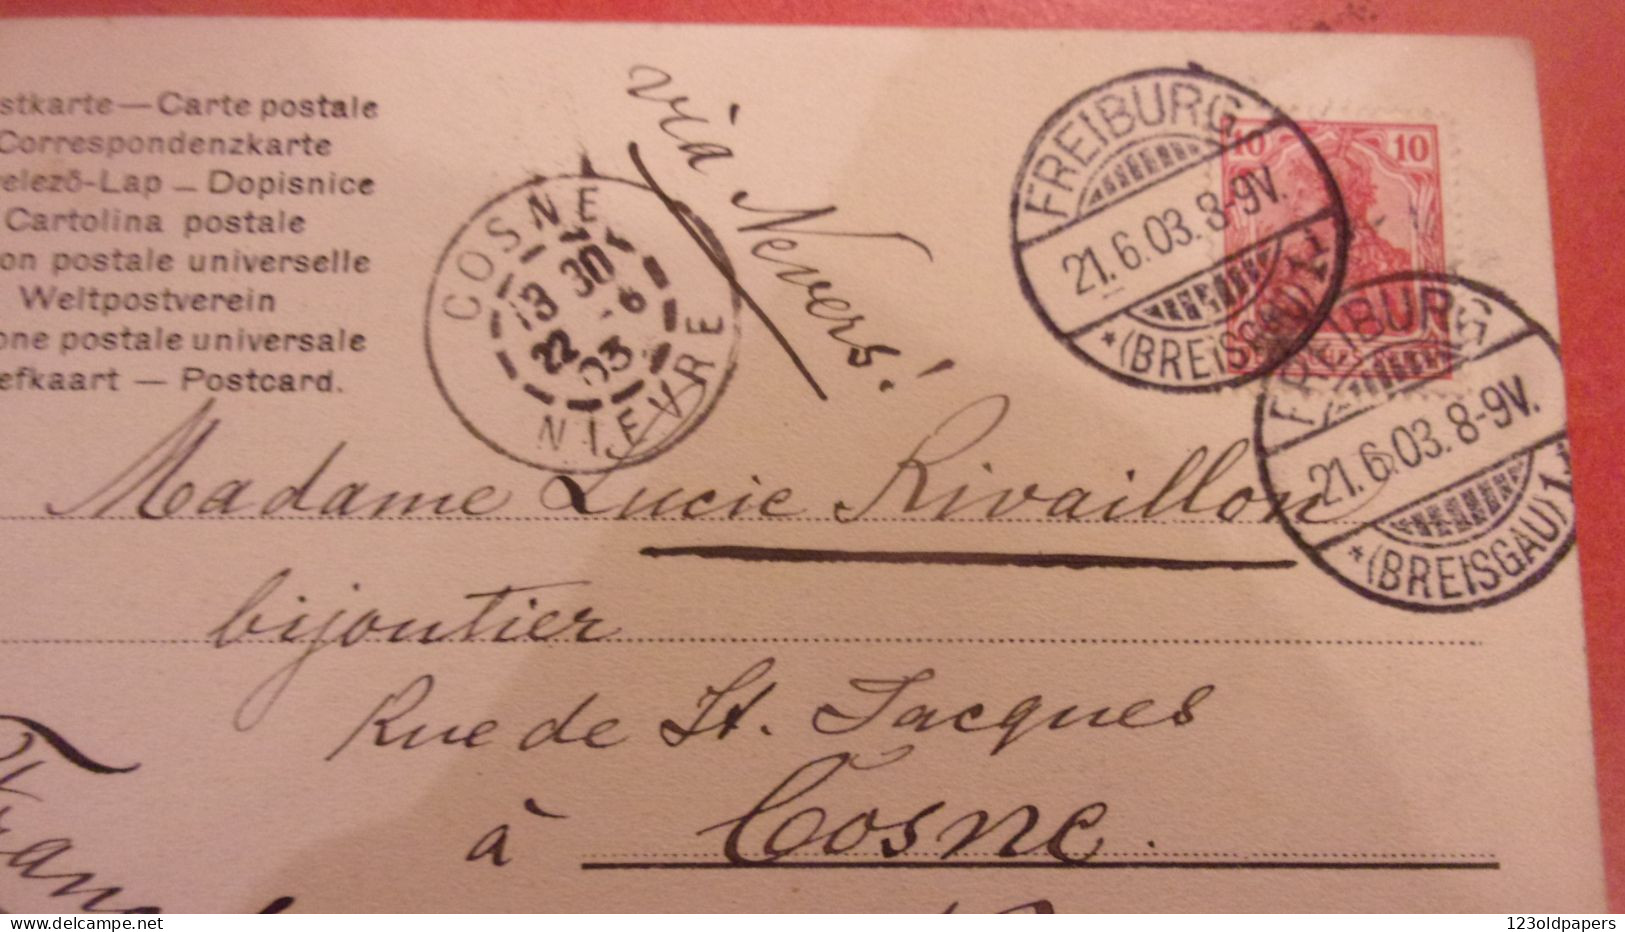 stkarte — Carte postale
Correspondenzkarte
elező-Lap — Dopisnice
Cartolina postale
on postale universelle
Weltpostverein
one postale universale
efkaart — Postcard.
COSNE
13 30
22 6
03
NIEVRE
viâ Nevers!
FREIBURG
21.6.03.8-9V.
*(BREISGAU)1
10 10
FREIBURG
21.6.03.8-9V.
*(BREISGAU)1
Madame Lucie Rivaillon
bijoutier
Rue de St. Jacques
à Cosne.
123oldpapers